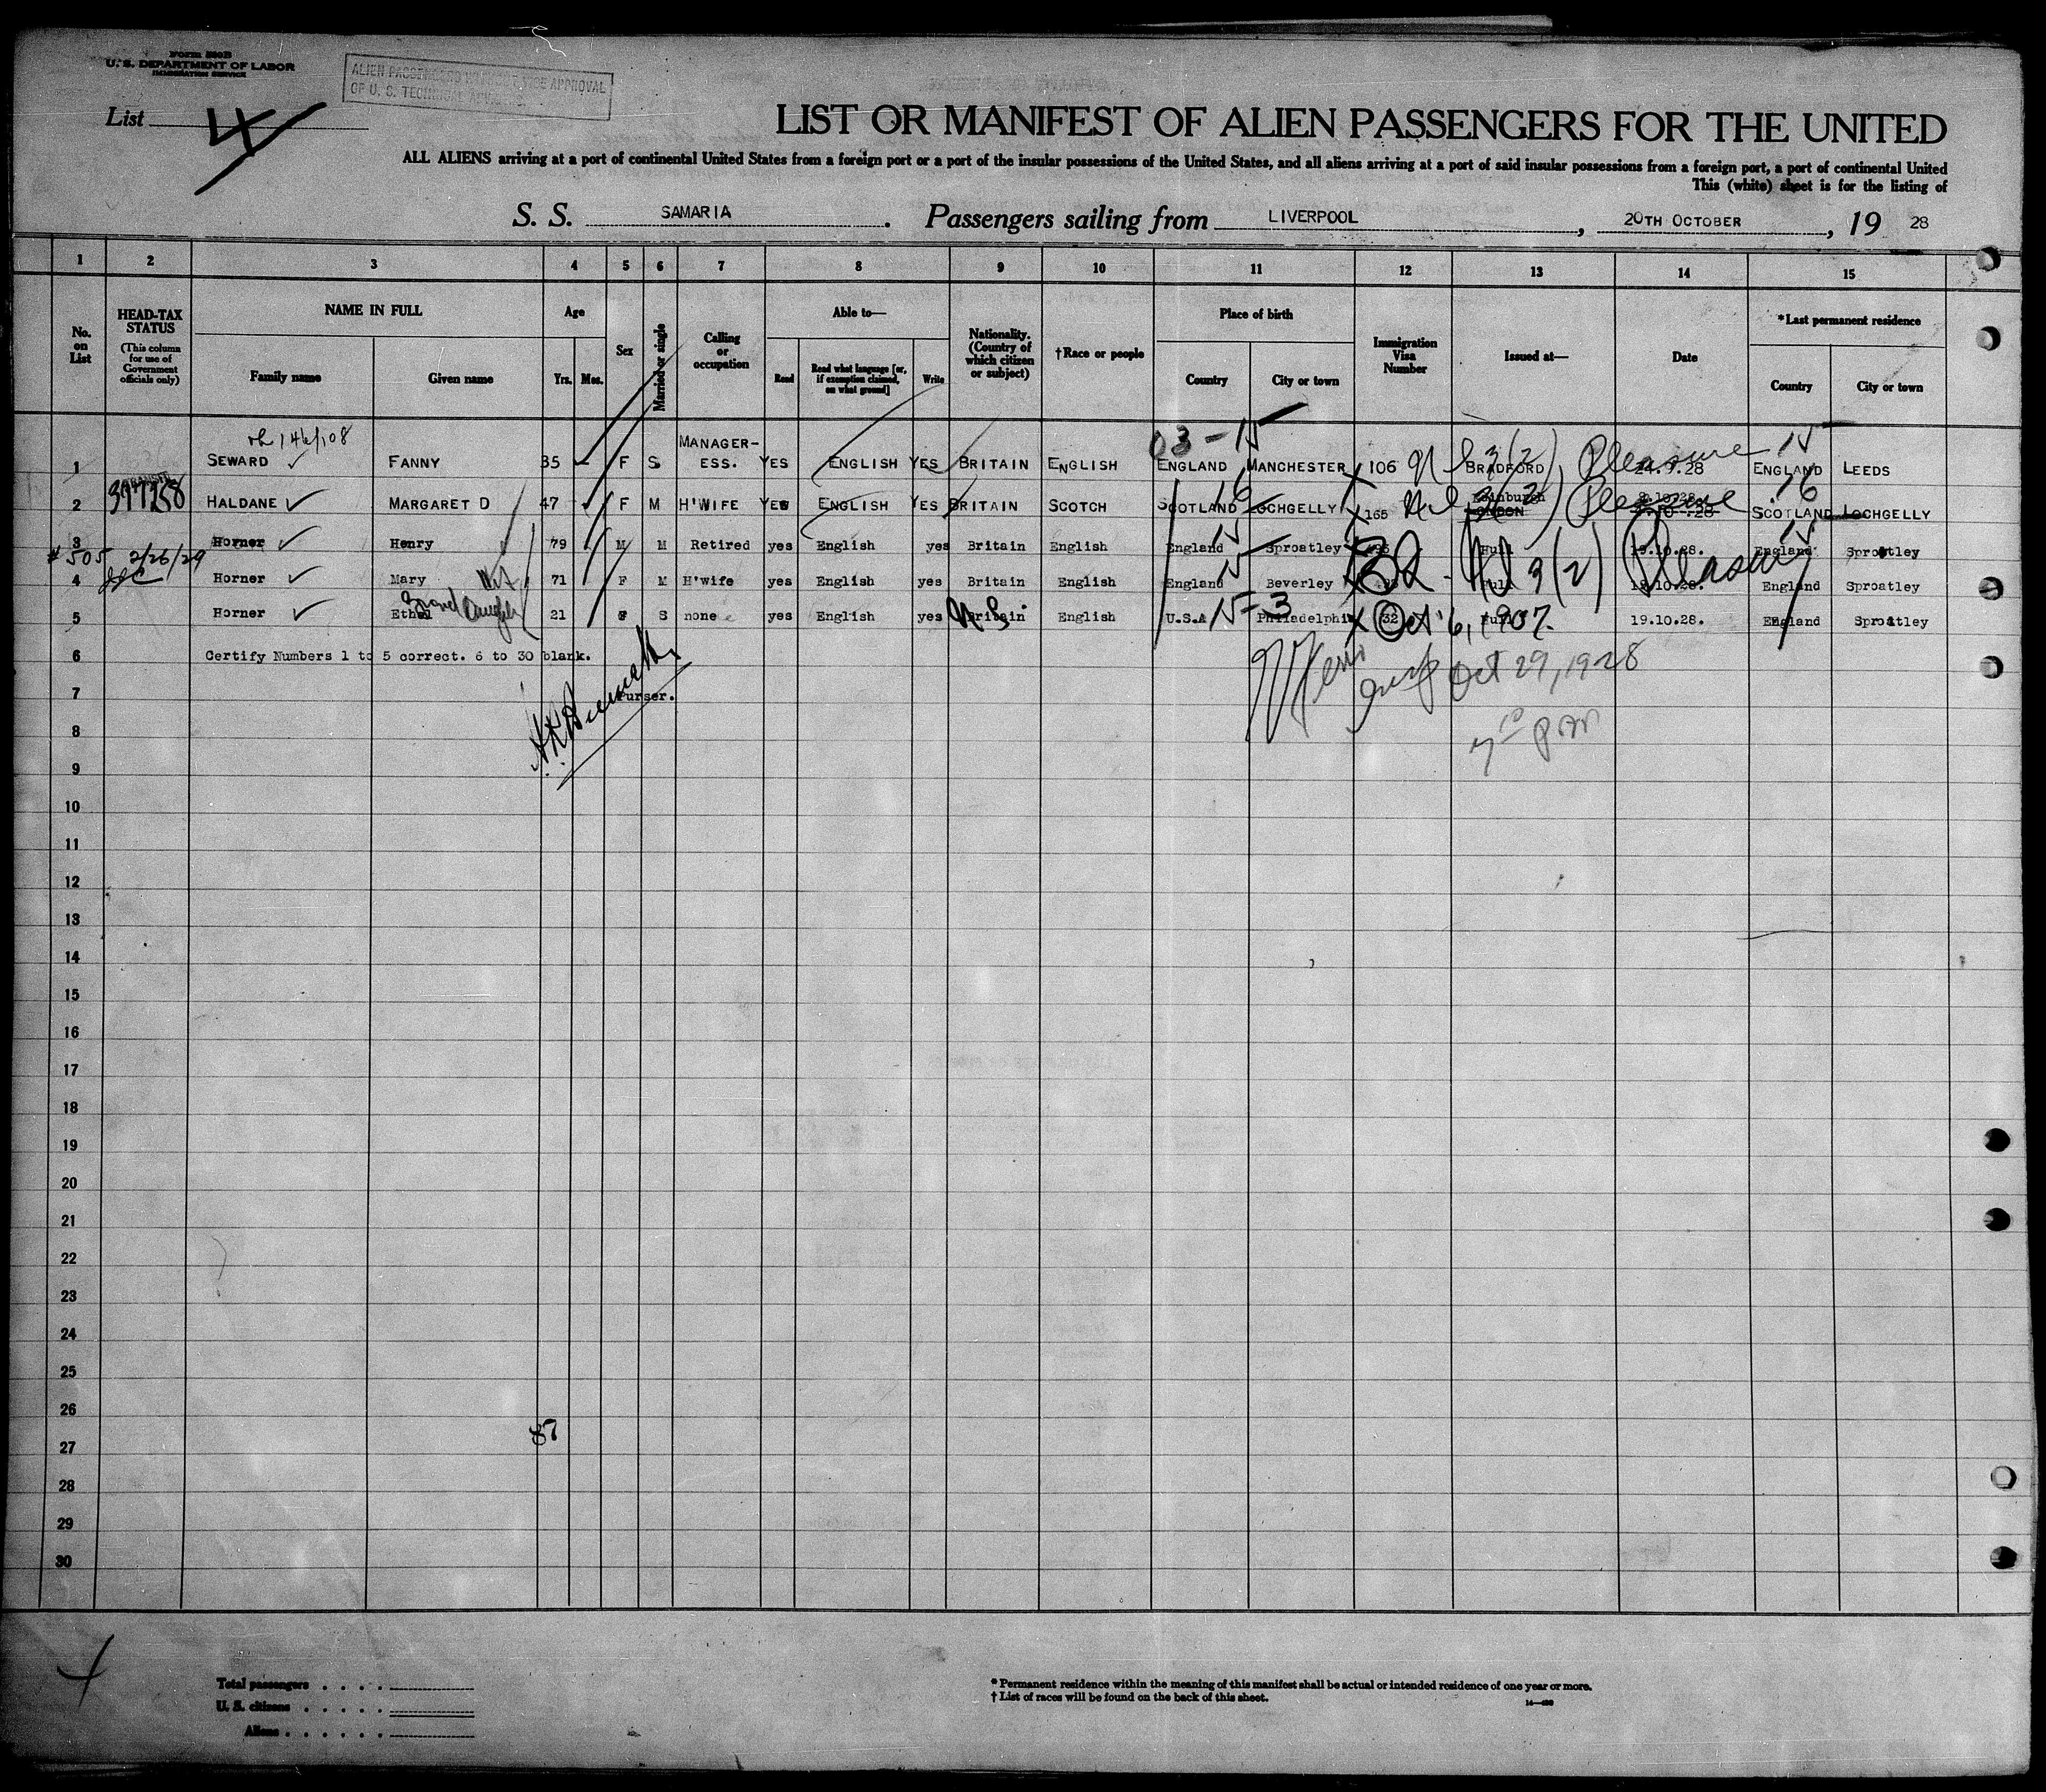 Form 500B
U. S. DEPARTMENT OF LABOR
IMMIGRATION SERVICE
ALIEN PASSENGERS APPROVAL
OF U. S. TECHNICAL
List 4
LIST OR MANIFEST OF ALIEN PASSENGERS FOR THE UNITED
ALL ALIENS arriving at a port of continental United States from a foreign port or a port of the insular possessions of the United States, and all aliens arriving at a port of said insular possessions from a foreign port, a port of continental United
This (white) sheet is for the listing of
S. S. SAMARIA. Passengers sailing from LIVERPOOL, 20TH OCTOBER, 19 28
1 2 3 4 5 6 7 8 9 10 11 12 13 14 15
No. on List
HEAD-TAX STATUS (This column for use of Government officials only)
NAME IN FULL
Family name
Given name
Age
Yrs. Mos.
Sex
Married or single
Calling or occupation
Able to—
Read
Read what language [or, if exemption claimed, on what ground]
Write
Nationality. (Country of which citizen or subject)
†Race or people
Place of birth
Country
City or town
Immigration Visa Number
Issued at—
Date
*Last permanent residence
Country
City or town
03-15
1 SEWARD FANNY 35 F S MANAGER-ESS. YES ENGLISH YES BRITAIN ENGLISH ENGLAND MANCHESTER 106 BRADFORD 3(2) Pleasure ENGLAND LEEDS
2 HALDANE MARGARET D 47 F M H'WIFE YES ENGLISH YES BRITAIN SCOTCH SCOTLAND LOCHGELLY 165 Edinburgh LONDON 3(2) Pleasure SCOTLAND LOCHGELLY
3 Horner Henry 79 M M Retired yes English yes Britain English England Sproatley Hull 19.10.28. England Sproatley
#505 2/26/29
4 Horner Mary 71 F M H'wife yes English yes Britain English England Beverley Hull 3(2) Pleasure England Sproatley
Grand Daught
5 Horner Ethel 21 F S none yes English yes Britain English U.S.A 15-3 Philadelphia 32 Oct 6, 1907. Hull 19.10.28. England Sproatley
6 Certify Numbers 1 to 5 correct. 6 to 30 blank.
Oct 29, 1928
7 Purser.
8
9
10
11
12
13
14
15
16
17
18
19
20
21
22
23
24
25
26
87
27
28
29
30
Total passengers
U. S. citizens
Aliens
* Permanent residence within the meaning of this manifest shall be actual or intended residence of one year or more.
† List of races will be found on the back of this sheet.